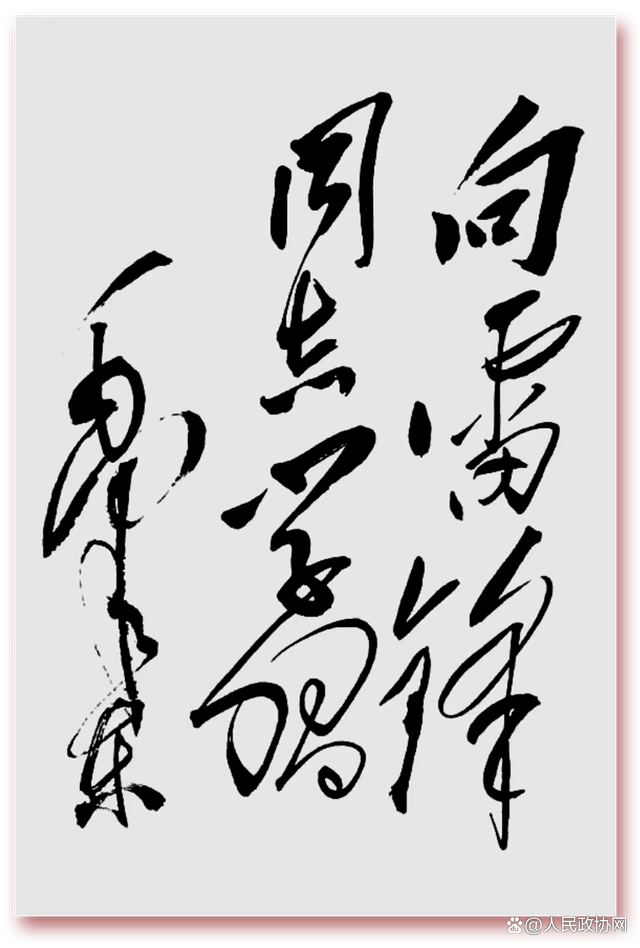 向雷锋
同志学习
毛泽东
@人民政协网